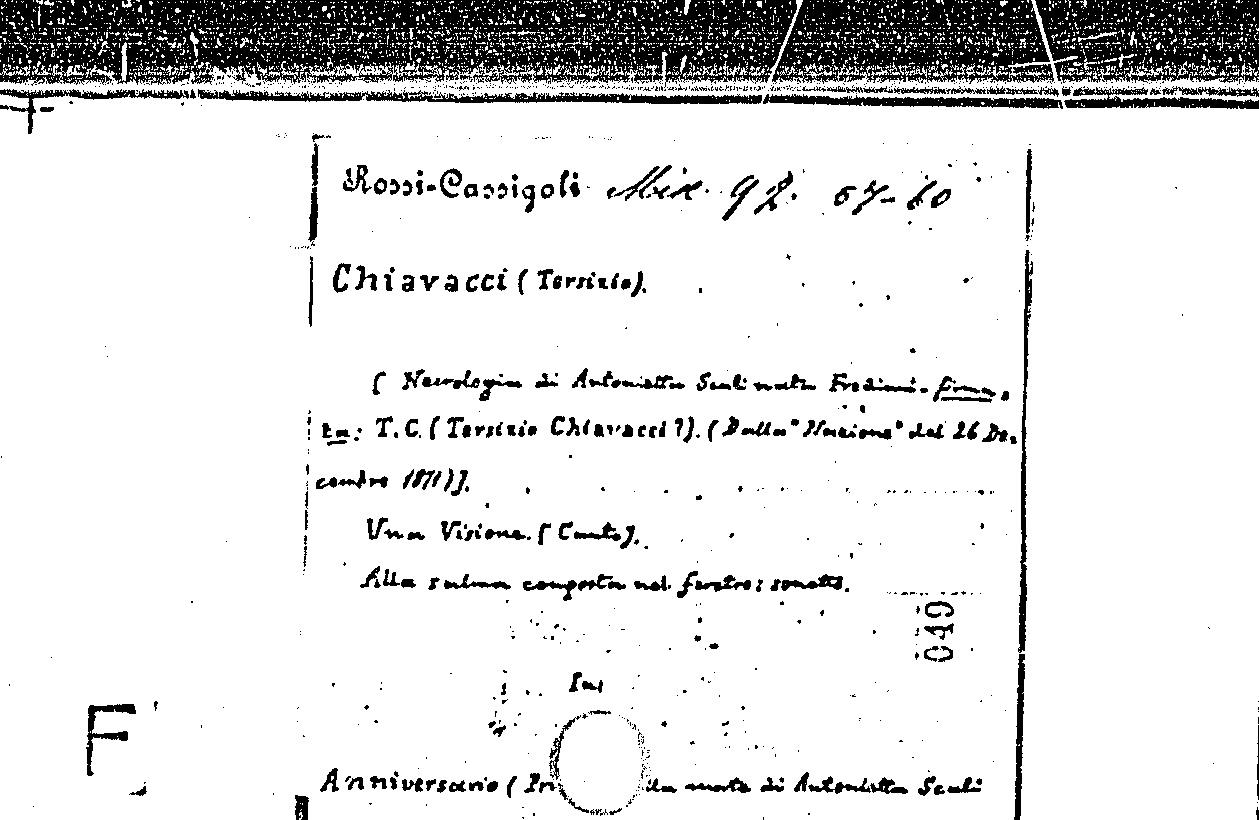 Rossi-Cassigoli Mix. 92. 57-60
Chiavacci (Tersizio).
[ Necrologia di Antonietta Scali nata Frediani - firma.
ta: T.C. (Tersizio Chiavacci?). (Dalla "Nazione" del 26 De.
cembre 1871)].
Una Visione. [Canto].
Alla salma composta nel feretro: sonetto.
In:
Anniversario ( Pri lla morte di Antonietta Scali
049
F